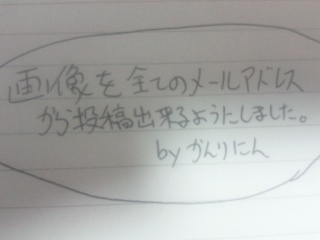 画像を全てのメールアドレス
から投稿出来るようにしました。
by かんりにん